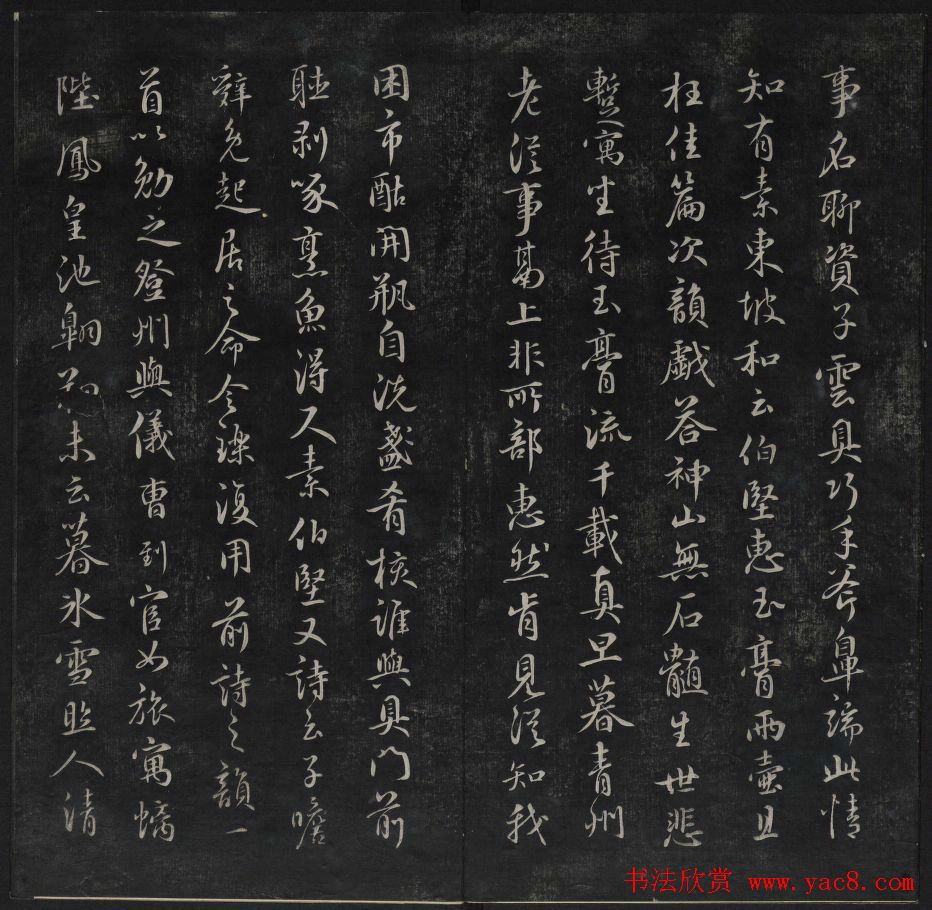 事名聊資子雲具巧手斧鼻端此情
知有素東坡和云伯堅惠玉膏兩壷且
枉佳篇次韻戲荅神山無石髓生世悲
蹔寓坐待玉膏流千載真旦暮青州
老從事鬲上非所部惠然肯見從知我
困市酤開瓶自洗盞肴核誰與具門前
聽剥啄烹魚得尺素伯堅又詩云子瞻
辭免起居之命令璨復用前詩之韻一
首以勉之登州與儀曹到官如旅寓螭
陛鳳皇池翱翔未云暮冰雪照人清
书法欣赏 www.yac8.com